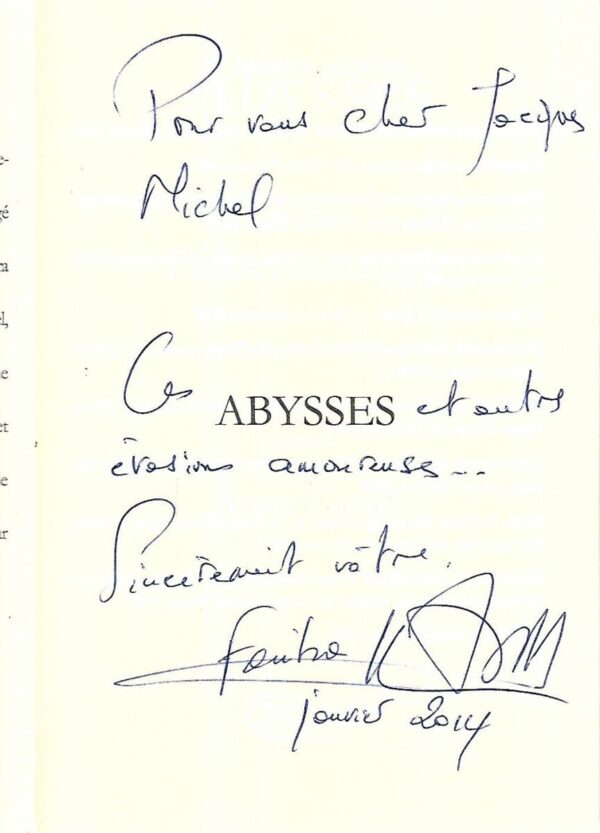 Pour vous cher Jacques
Michel
Ces ABYSSES et autres
évasions amoureuses...
Sincèrement vôtre.
janvier 2014